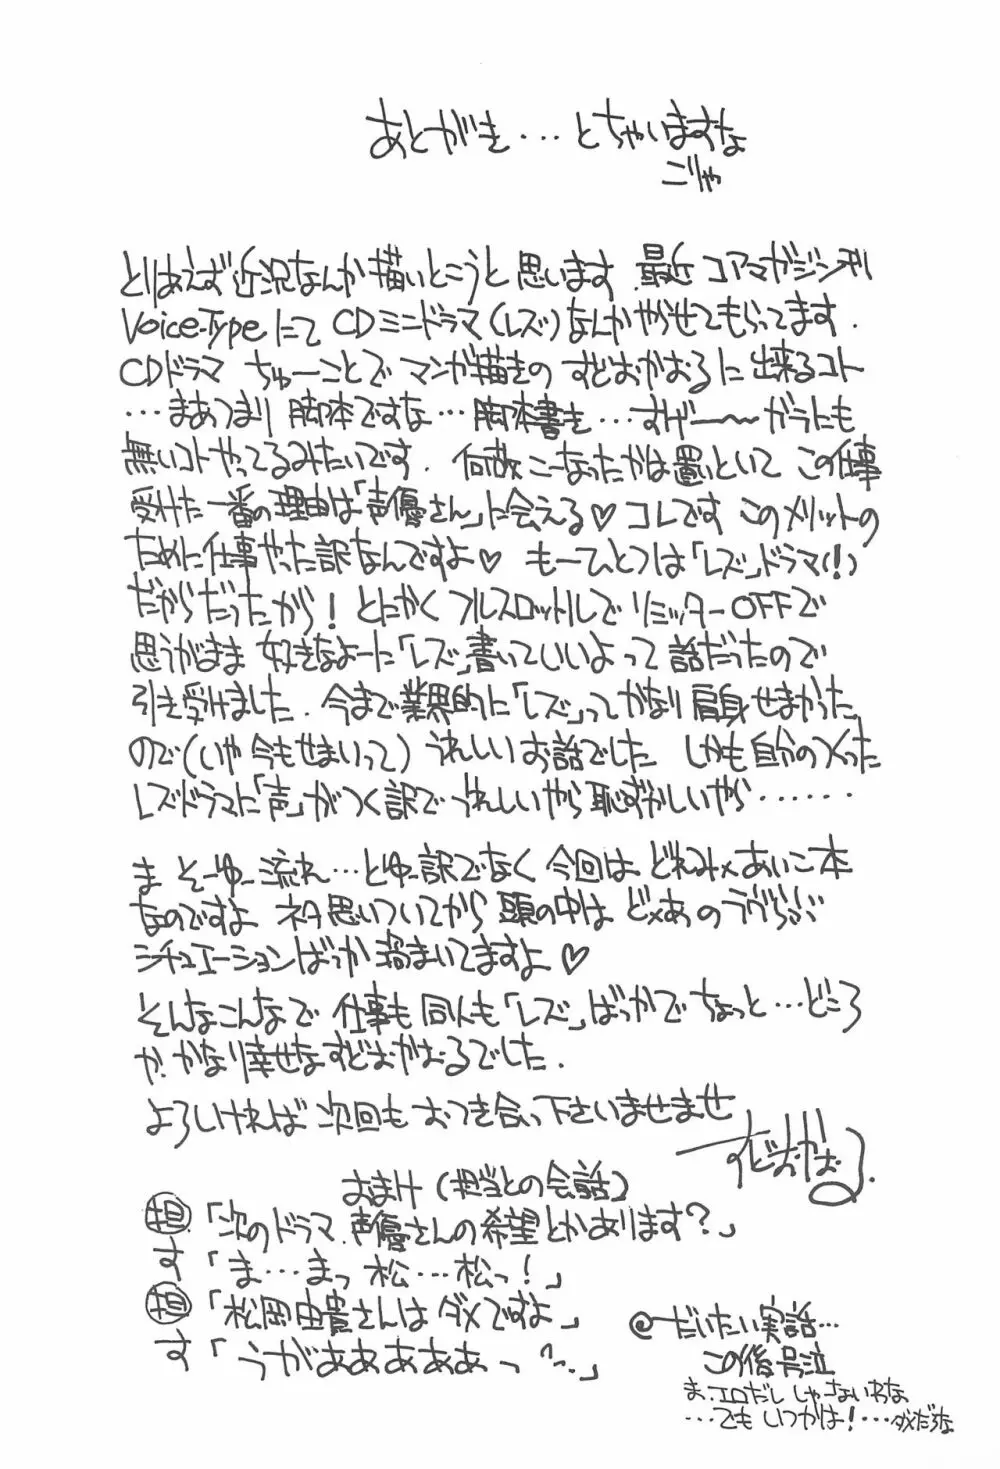 あとがき・・・とちゃいますな
こりゃ
とりあえず近況なんか描いとこうと思います．最近コアマガジン刊
Voice-Typeにて CDミニドラマ(レズ)なんかやらせてもらってます．
CDドラマ ちゅーことで マンガ描きの すどおかおるに 出来るコト
・・・まあつまり 脚本ですな・・・脚本書き・・・すげー〜〜ガラにも
無いコトやってるみたいです． 何故こーなったかは置いといて この仕事
受けた一番の理由は「声優さん」に会える♡ コレです このメリットの
ために仕事やった訳なんですよ♡ もーひとつは「レズ」ドラマ(!)
だからだったから！とにかく フルスロットルで リミッターOFFで
思うがまま 好きなよーに「レズ」書いていいよって 話だったので
引き受けました．今まで業界的に「レズ」ってかなり肩身せまかった
ので(いや今もせまいって) うれしいお話でした しかも自分のつくった
レズドラマに「声」がつく訳で うれしいやら恥ずかしいやら・・・・・・
ま そーゆー流れ・・・とゆー訳でなく 今回は どれみ×あいこ本
なのですよ ネタ思いついてから 頭の中は ど×あのラヴらぶ
シチュエーションばっか渦まいてますよ♡
そんなこんなで 仕事も同人も「レズ」ばっかで ちょっと・・・どころ
か、かなり幸せなすどおかおるでした．
よろしければ 次回も おつき合い下さいませませ
すどおかおる．
おまけ(担当との会話)
担「次のドラマ、声優さんの希望とかあります？」
す「ま・・・まっ 松・・・松っ！」
担「松岡由貴さんは ダメですよ」
す「うがあああああっ」
@だいたい実話・・・
この後号泣
ま、エロだし しゃーないわな
・・・でも いつかは！・・・ダメだろな